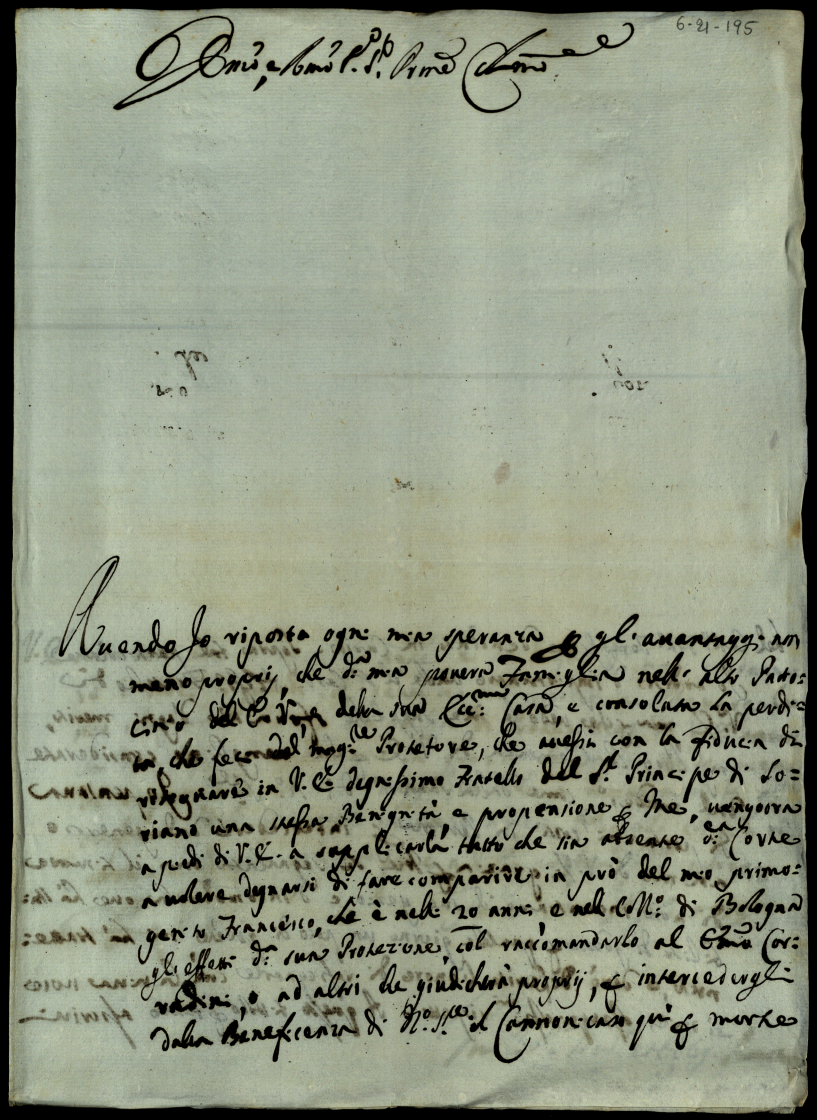 6-21-195
Emo, e Rmo Sig.r Sig.r Prone Colmo
Avendo Jo riposta ogni mia speranza p gl'avantaggi non
meno proprij, che d.a mia povera Famiglia nell'alto Patro=
cinio della sua Ecc.ma Casa, e consolata la perdi=
ta, che feci del mag.re Protetore, che avessi con la Fiducia di
rinvenire in V.E. degnissimo Fratello del S.r Principe di So=
riano una stessa Benignità e propensione p Me, vengo ora
a piedi di V.E. a supplicarla, tutto che sia absente d.a Corte
a volere degnarsi di fare comparire in prò del mio primo=
genito Francesco, che è nelli 20 anni e nel Coll.o di Bologna
gli effetti d.a sua Protezione, col raccomandarlo al Emo Cor=
radini, o ad altri che giudicherà proprij, p intercedergli
dalla Beneficenza di N.o S.re il Cannonicato quì p morte